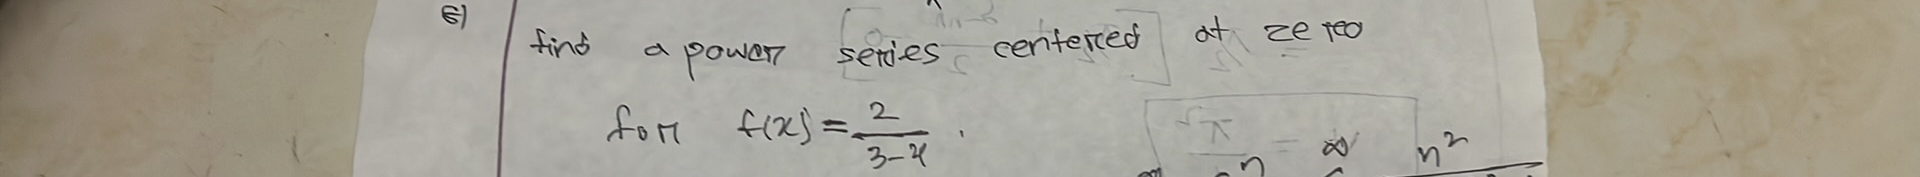 6)
find a power series centered at zero
for f(x) = 2/(3-x).
n²